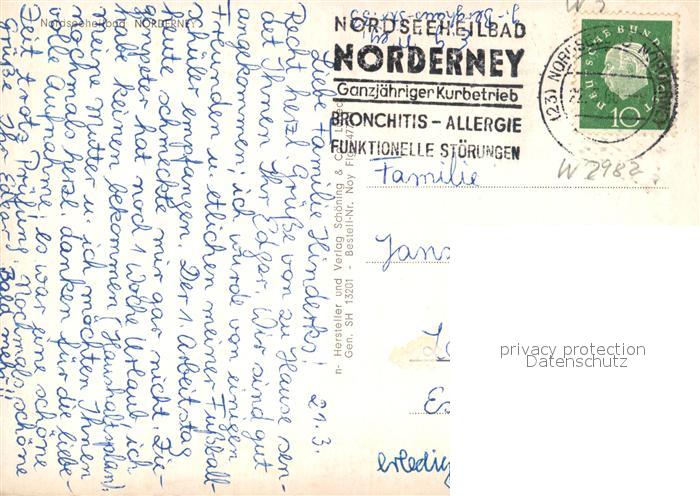 Nordseeheilbad NORDERNEY
NORDSEEHEILBAD
NORDERNEY
Ganzjähriger Kurbetrieb
BRONCHITIS – ALLERGIE
FUNKTIONELLE STÖRUNGEN
10
W 2982
21.3.
Liebe Familie Hinderks!
Recht herzl. Grüße von zu Hause sen-
det Ihnen Ihr Edgar. Wir sind gut
angekommen; ich wurde von einigen
Freunden u. etlichen meiner Fußball-
schüler empfangen. Der 1. Arbeitstag
heute schmeckte mir gar nicht. Die-
ter hat noch 1 Woche Urlaub, ich
habe keinen bekommen (Haushaltsplan).
Meine Mutter u. ich möchten Ihnen
nochmals herzl. danken für die liebe-
volle Aufnahme; es war eine schöne
Zeit trotz Prüfung. Nochmals schöne
Grüße Ihr Edgar. Bald mehr!!
n- Hersteller und Verlag Schöning & Co
Gen. SH 13201 - Bestell-Nr. Noy
Familie
Jans
Es
erledig
privacy protection
Datenschutz